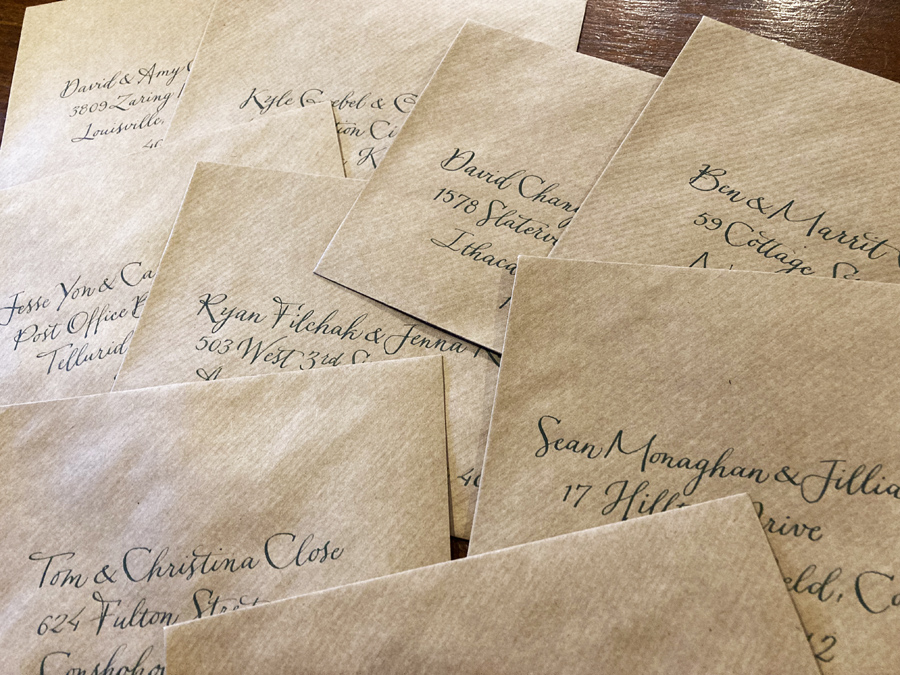 David & Amy
3809 Zaring
Louisville,
Kyle & 
David Chang
1578 Slaterv
Ithaca
Ben & Marrit
59 Cottage
Jesse Yon & Ca
Post Office B
Tellurid
Ryan Filchak & Jenna
503 West 3rd S
Sean Monaghan & Jillia
17 Hillt Drive
eld, Co
2
Tom & Christina Close
624 Fulton Street
Conshohoc